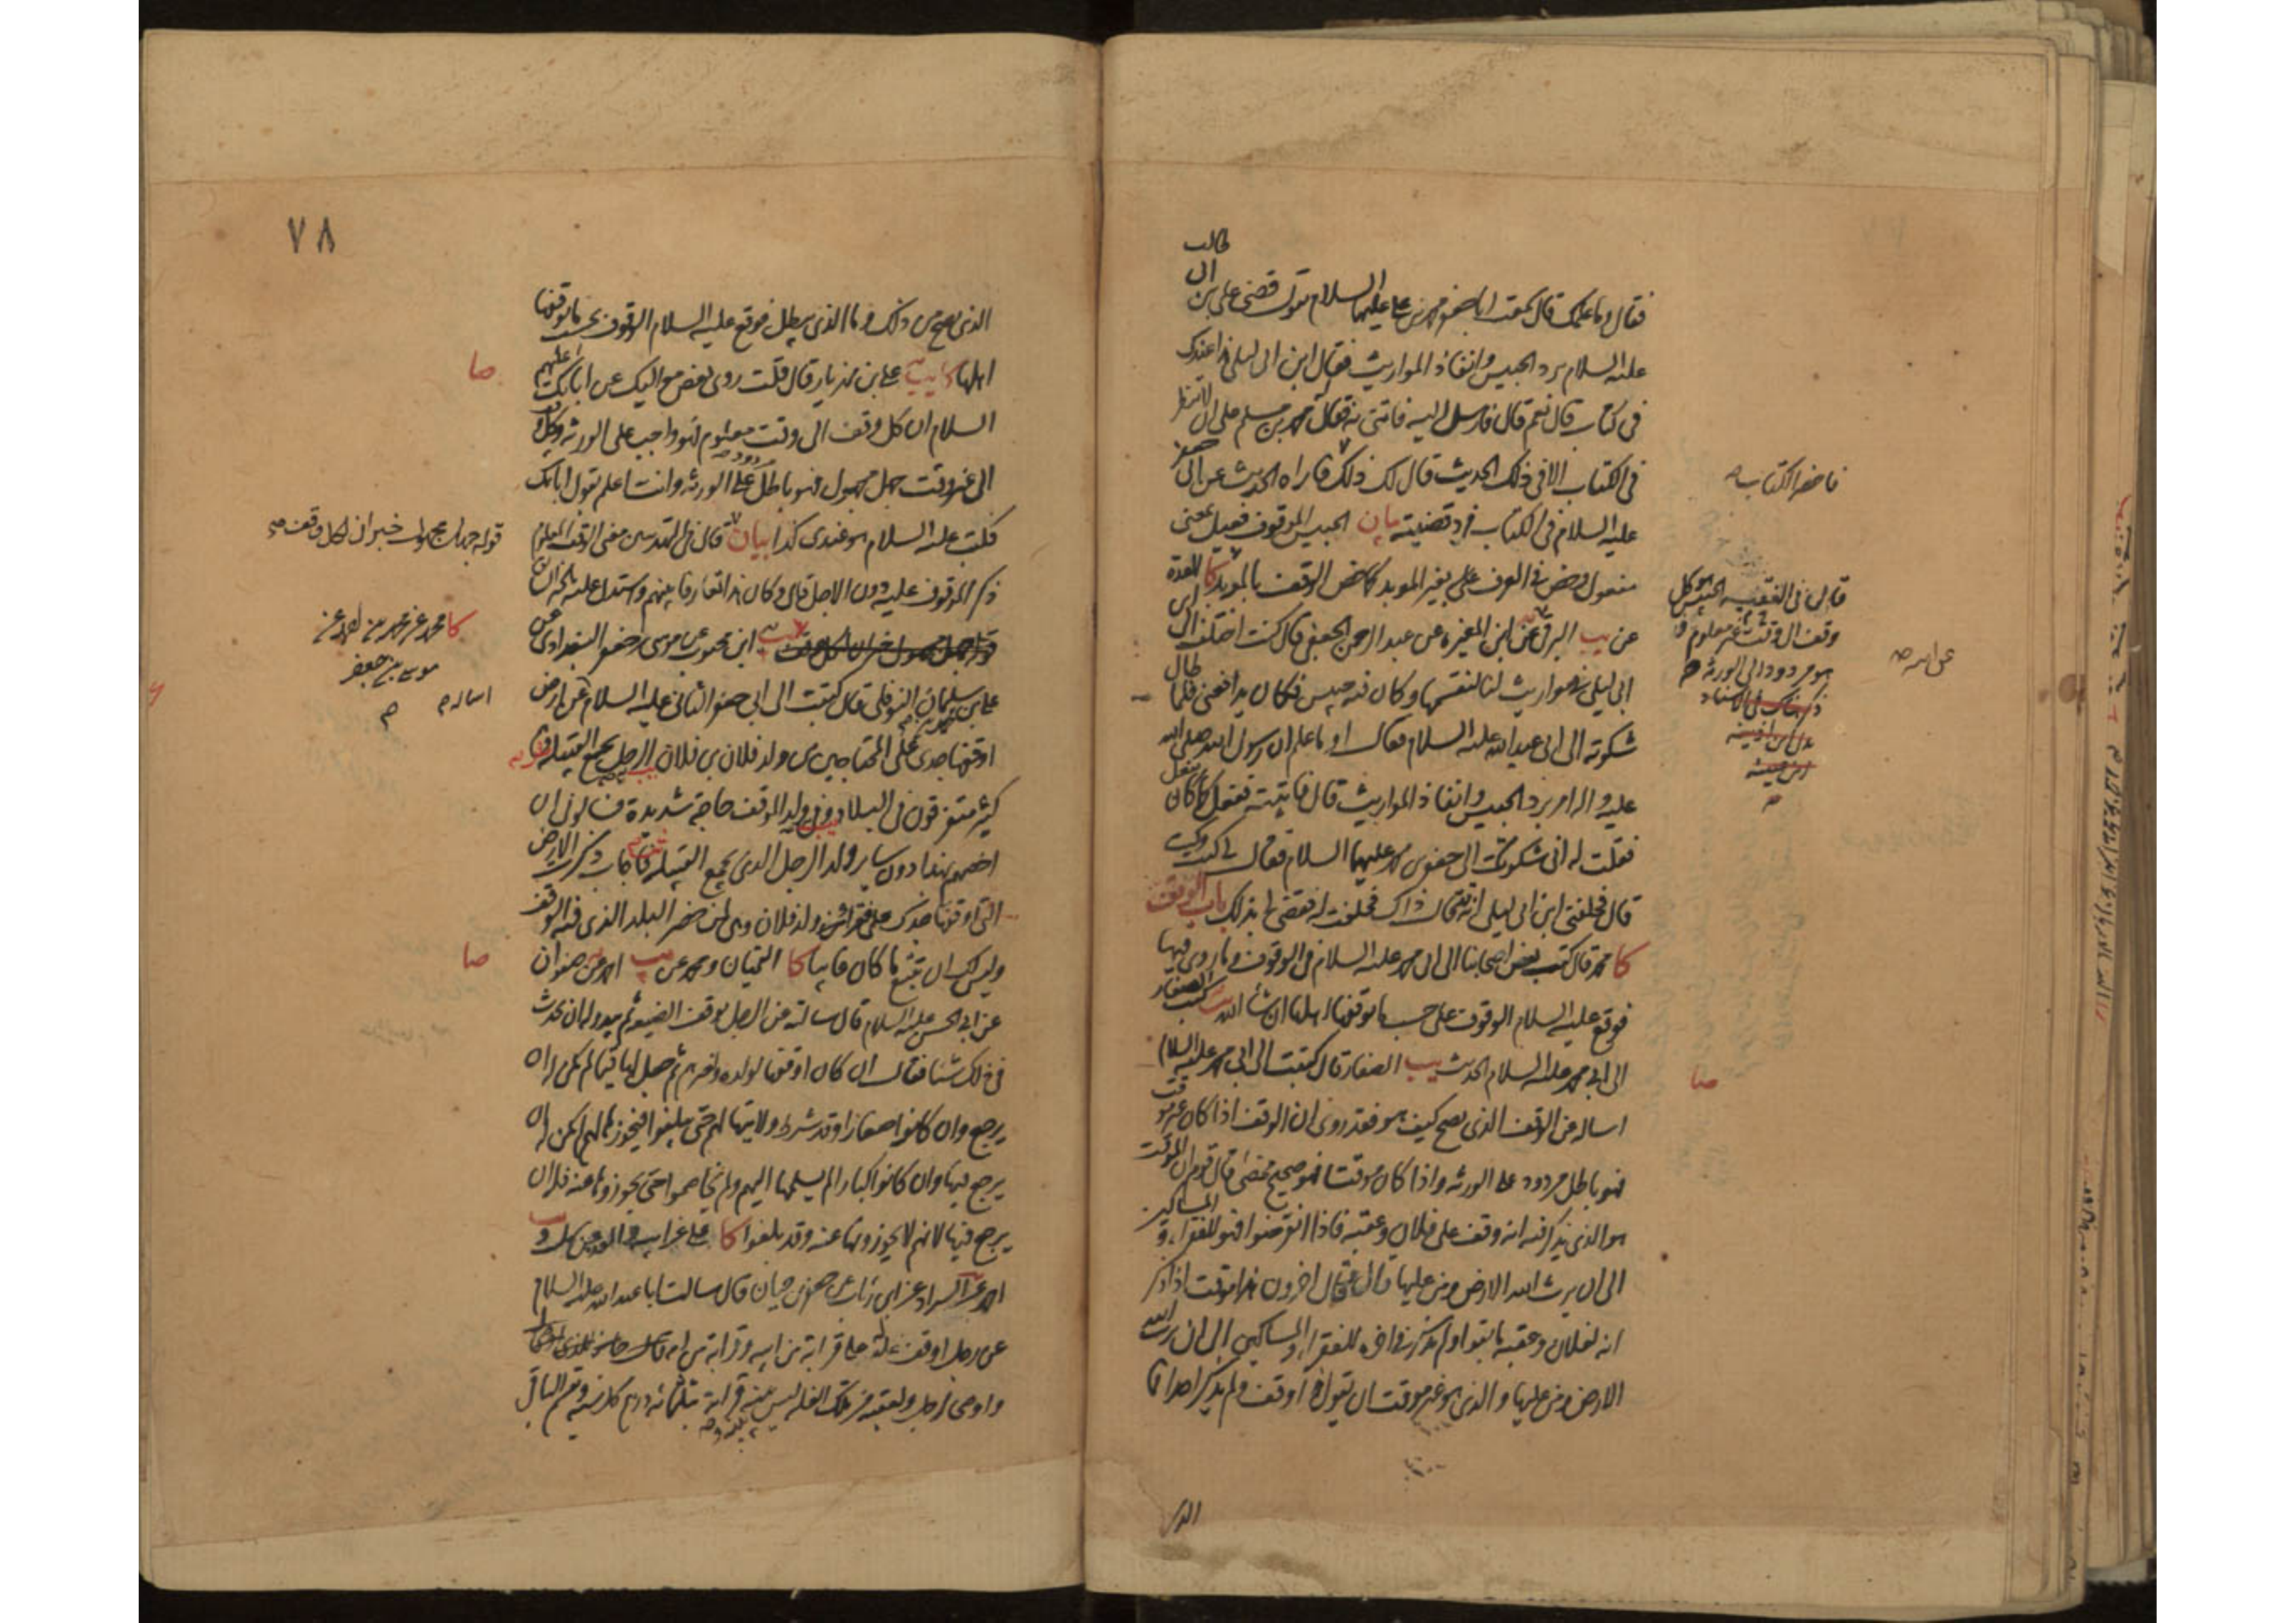 طالب
فقال وما علمك قال سمعت ابا جعفر محمد بن علي عليهما السلام يقول قضى علي بن ابي
عليه السلام برد الحبيس وانفاذ المواريث فقال ابن ابي ليلى هذا عندك
في كتاب قال نعم قال فارسل اليه فاتني به فقال محمد بن مسلم على ان لا تنظر
في الكتاب الا في ذلك الحديث قال لك ذلك فاراه الحديث عن ابي جعفر
عليه السلام في الكتاب فرد قضيته بيان الحبيس الموقوف فعيل بمعنى
مفعول وخص في العرف على غير الموبد كما خص الوقف بالموبد كا العدة
عن يب البرقي عن ابن المغيرة عن عبد الرحمن الجعفي قال كنت اختلف الى ابن
ابي ليلى في مواريث لنا لنقسمها وكان فيه حبيس فكان يدافعني فلما طال
شكوته الى ابي عبد الله عليه السلام فقال او ما علم ان رسول الله صلى الله
عليه واله امر برد الحبيس وانفاذ المواريث قال فاتيته ففعل كما كان يفعل
فقلت له اني شكوتك الى جعفر بن محمد عليهما السلام فقال لي كيت وكيت
قال فحلفني ابن ابي ليلى انه قد قال ذاك فحلفت له فقضى لي بذلك باب الوقف
كا محمد قال كتب بعض اصحابنا الى ابي محمد عليه السلام في الوقوف وما روي فيها
فوقع عليه السلام الوقوف على حسب ما يوقفها اهلها ان شاء الله يه كتب الصفار
الى ابي محمد عليه السلام الحديث يب الصفار قال كتبت الى ابي محمد عليه السلام
اساله عن الوقف الذي يصح كيف هو فقد روي ان الوقف اذا كان غير موقت
فهو باطل مردود على الورثه واذا كان موقتا فهو صحيح ممضى قال قوم ان الموقت
هو الذي يذكر فيه انه وقف على فلان وعقبه فاذا انقرضوا فهو للفقراء و المساكين
الى ان يرث الله الارض ومن عليها قال وقال اخرون هذا موقت اذا ذكر
انه لفلان وعقبه ما بقوا ولم يذكر في اخره للفقراء والمساكين الى ان يرث الله
الارض ومن عليها والذي هو غير موقت ان يقول هذا وقف ولم يذكر احدا فما
الذي
فاحضر الكتاب صح
قال في الفقيه الحبيس هو كل
وقف الى وقت غير معلوم
هو مردود الى الورثه
عن اسره صح
صا
٧٨
الذي يصح من ذلك وما الذي يبطل فوقع عليه السلام الوقوف بحسب ما يوقفها
اهلها كا يب يه علي بن مهزيار قال قلت روى بعض مواليك عن ابائك عليهم
السلام ان كل وقف الى وقت معلوم فهو واجب على الورثه وكل وقف
الى غير وقت جهل مجهول فهو باطل مردود على الورثه وانت اعلم بقول ابائك
فكتب عليه السلام هو عندي كذا بيان قال في التهذيبين معنى الوقت المعلوم
ذكر الموقوف عليه دون الاجل قال وكان هذا تعارفا بينهم واستدل عليه بالخبر
يب ابن محبوب عن موسى بن جعفر البغدادي عن
علي بن سليمان النوفلي قال كتبت الى ابي جعفر الثاني عليه السلام عن ارض
اوقفها جدي على المحتاجين من ولد فلان بن فلان الرجل يجمع القبيلة
كثير متفرقون في البلاد وفي ولد الموقف حاجة شديدة فسالوني ان
اخصهم بهذا دون ساير ولد الرجل الذي يجمع القبيلة فاجاب ذكرت الارض
التي اوقفها جدك على فقراء ولد فلان وهي لمن حضر البلد الذي فيه الوقف
وليس لك ان تتبع ما كان غايبا كا القميان ومحمد عن يب احمد عن صفوان
عن ابي الحسن عليه السلام قال سالته عن الرجل يوقف الضيعة ثم يبدو له ان يحدث
في ذلك شيئا فقال ان كان اوقفها لولده ولغيرهم ثم جعل لها قيما لم يكن له ان
يرجع وان كانوا صغارا وقد شرط ولايتها لهم حتى يبلغوا فيحوزها لهم لم يكن له ان
يرجع فيها وان كانوا كبارا لم يسلمها اليهم ولم يخاصموا حتى يحوزوها عنه فله ان
يرجع فيها لانهم لا يحوزونها عنه وقد بلغوا كا علي عن ابيه
احمد عن السراد عن ابن رئاب عن جعفر بن حيان قال سالت ابا عبد الله عليه السلام
عن رجل اوقف غلة له على قرابة من ابيه وقرابة من امه
واوصى لرجل ولعقبه من تلك الغلة ليس بينه وبينه قرابة بثلثمائه درهم كل سنه ويقسم الباقي
صا
قوله جهل مجهول خبر ان لكل وقف صح
كا محمد عن محمد بن احمد عن
موسى بن جعفر
اساله م
صا